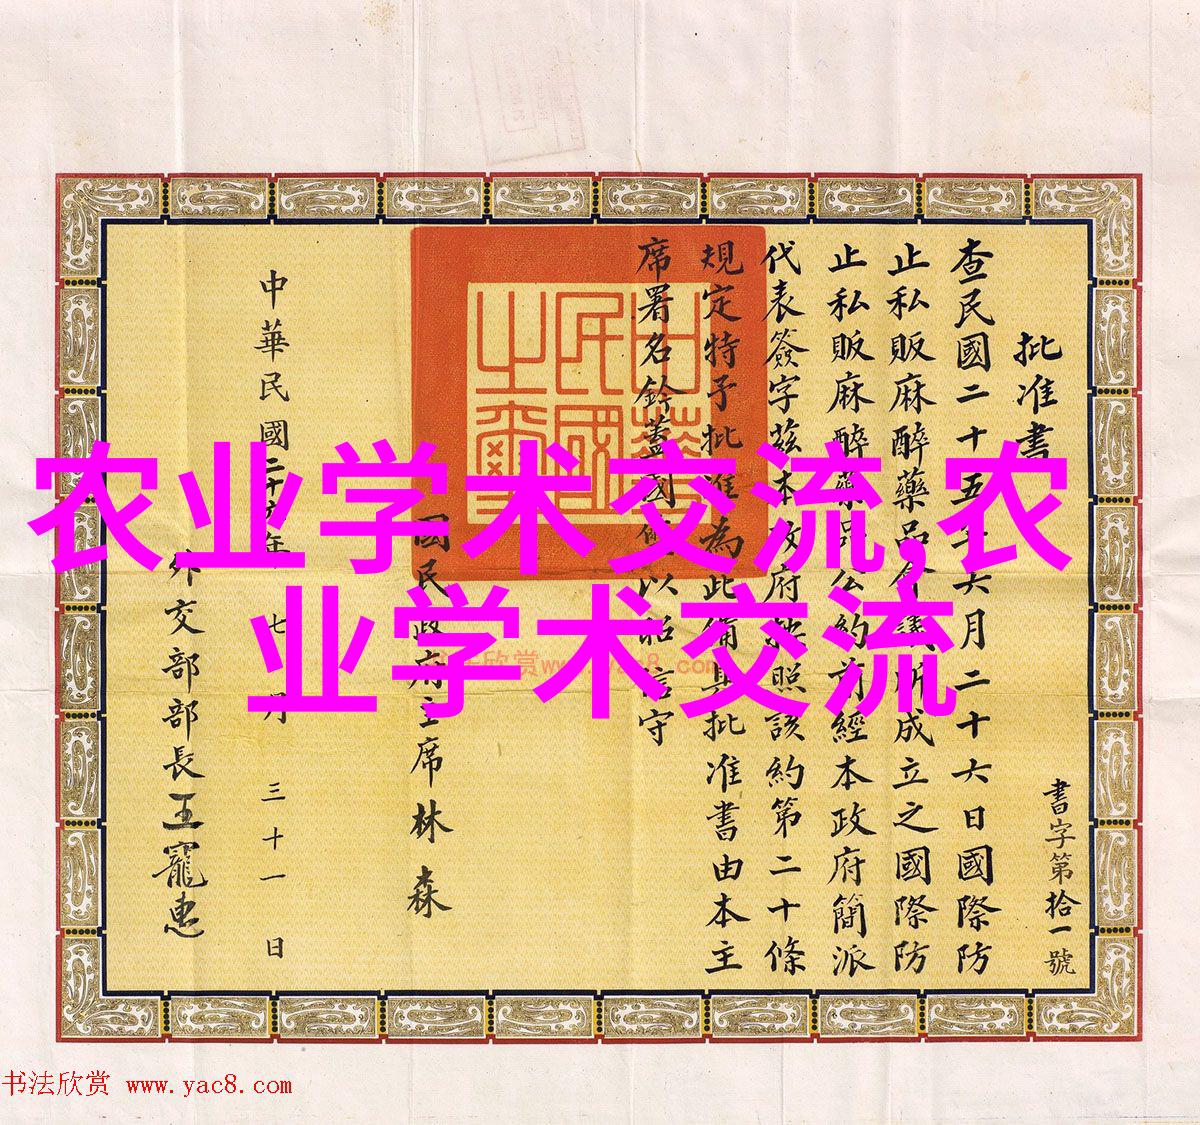 批准書
書字第拾一號
查民國二十五年六月二十六日國際防
止私販麻醉藥品會議所成立之國際防
止私販麻醉藥品公約前經本政府簡派
代表簽字茲本政府按照該約第二十條
規定特予批准為此備具批准書由本主
席署名鈐蓋國璽以昭信守
中華民國之璽
國民政府主席林森
中華民國二十年七月三十一日
外交部部長王寵惠
农业学术交流,农
业学术交流
法欣赏www.yac8.com
书法欣赏 www.yac8.com